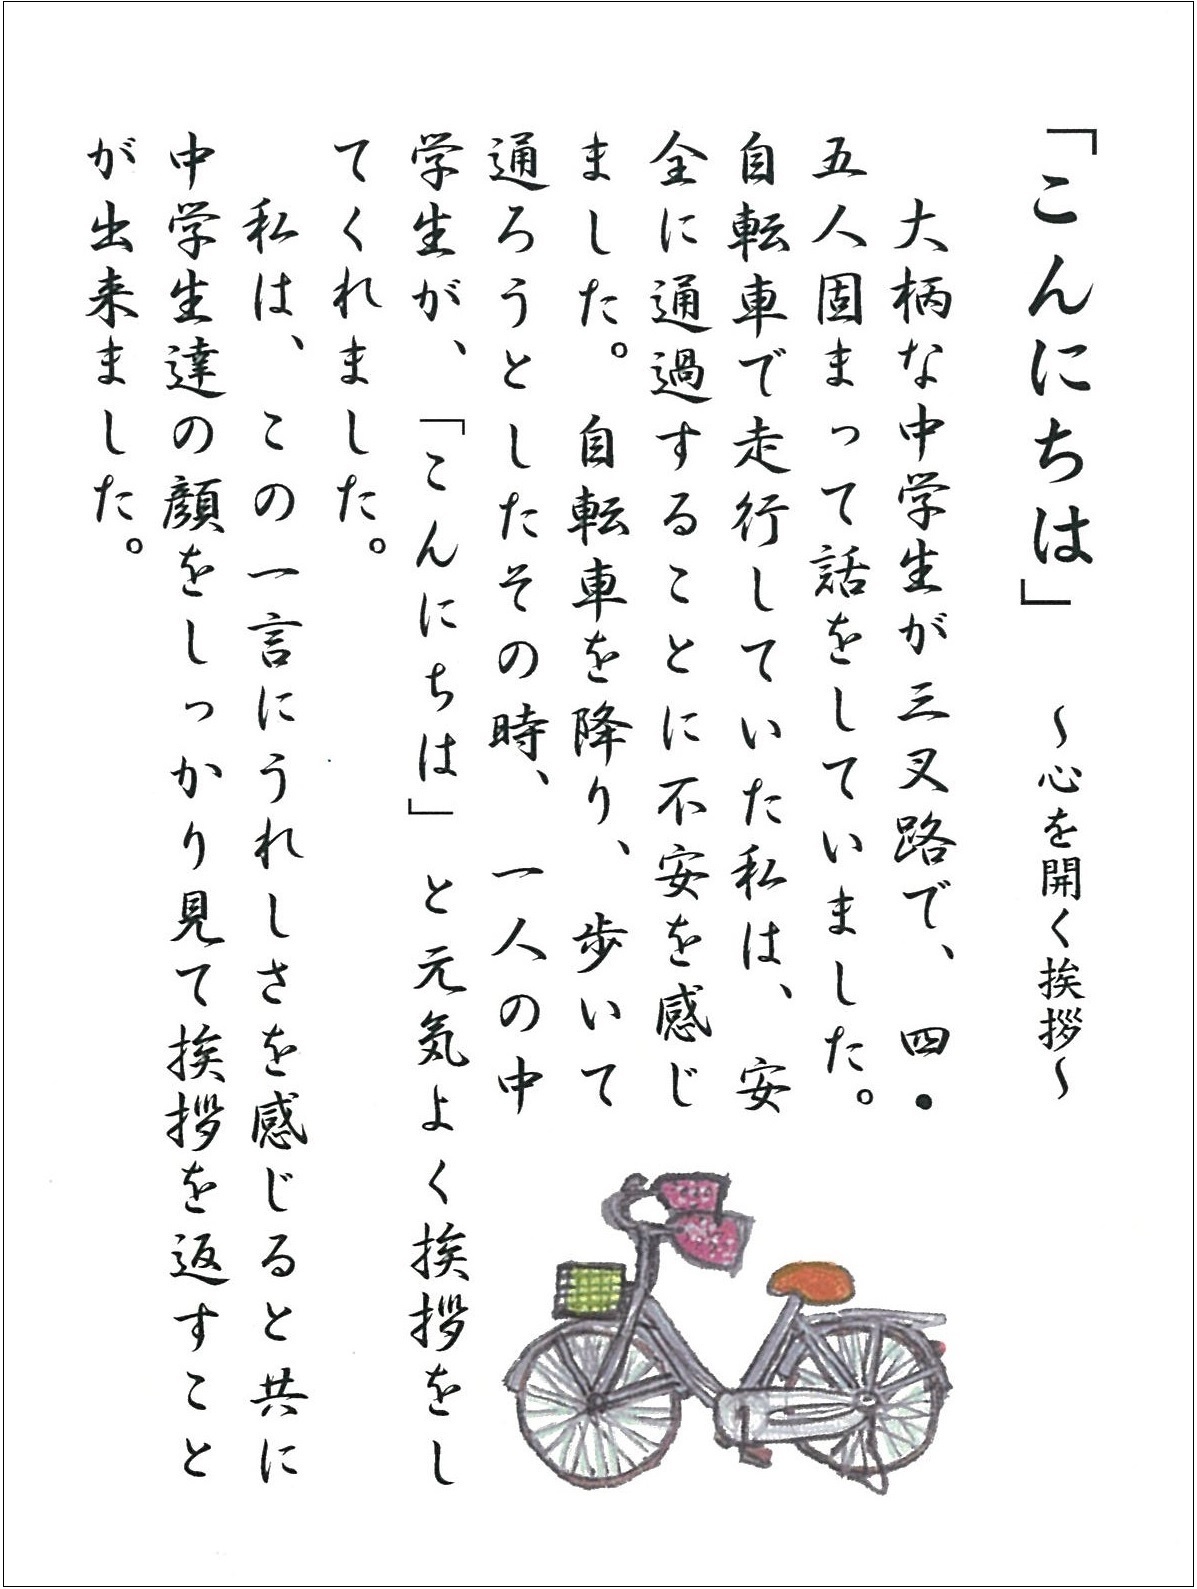 「こんにちは」　～心を開く挨拶～
　大柄な中学生が三叉路で、四・
五人固まって話をしていました。
自転車で走行していた私は、安
全に通過することに不安を感じ
ました。自転車を降り、歩いて
通ろうとしたその時、一人の中
学生が、「こんにちは」と元気よく挨拶をし
てくれました。
　私は、この一言にうれしさを感じると共に
中学生達の顔をしっかり見て挨拶を返すこと
が出来ました。